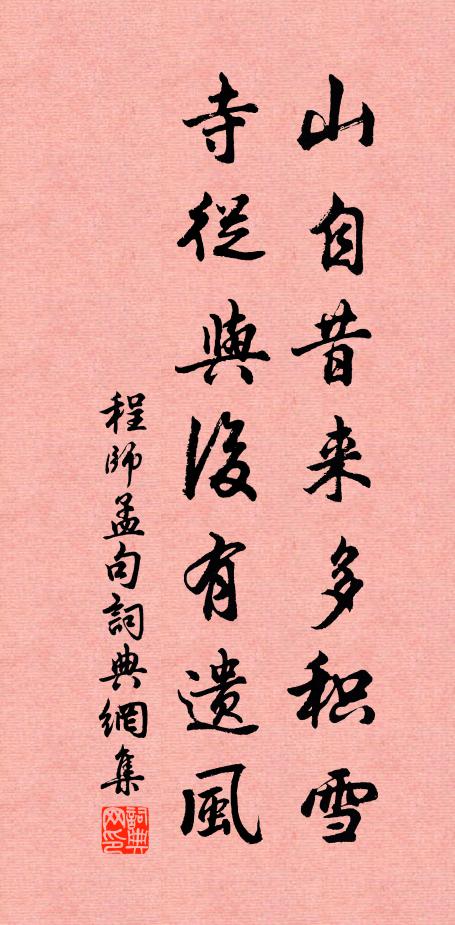 山自昔来多积雪
寺從興後有遺風
程師孟句詞典網集
詞典网印